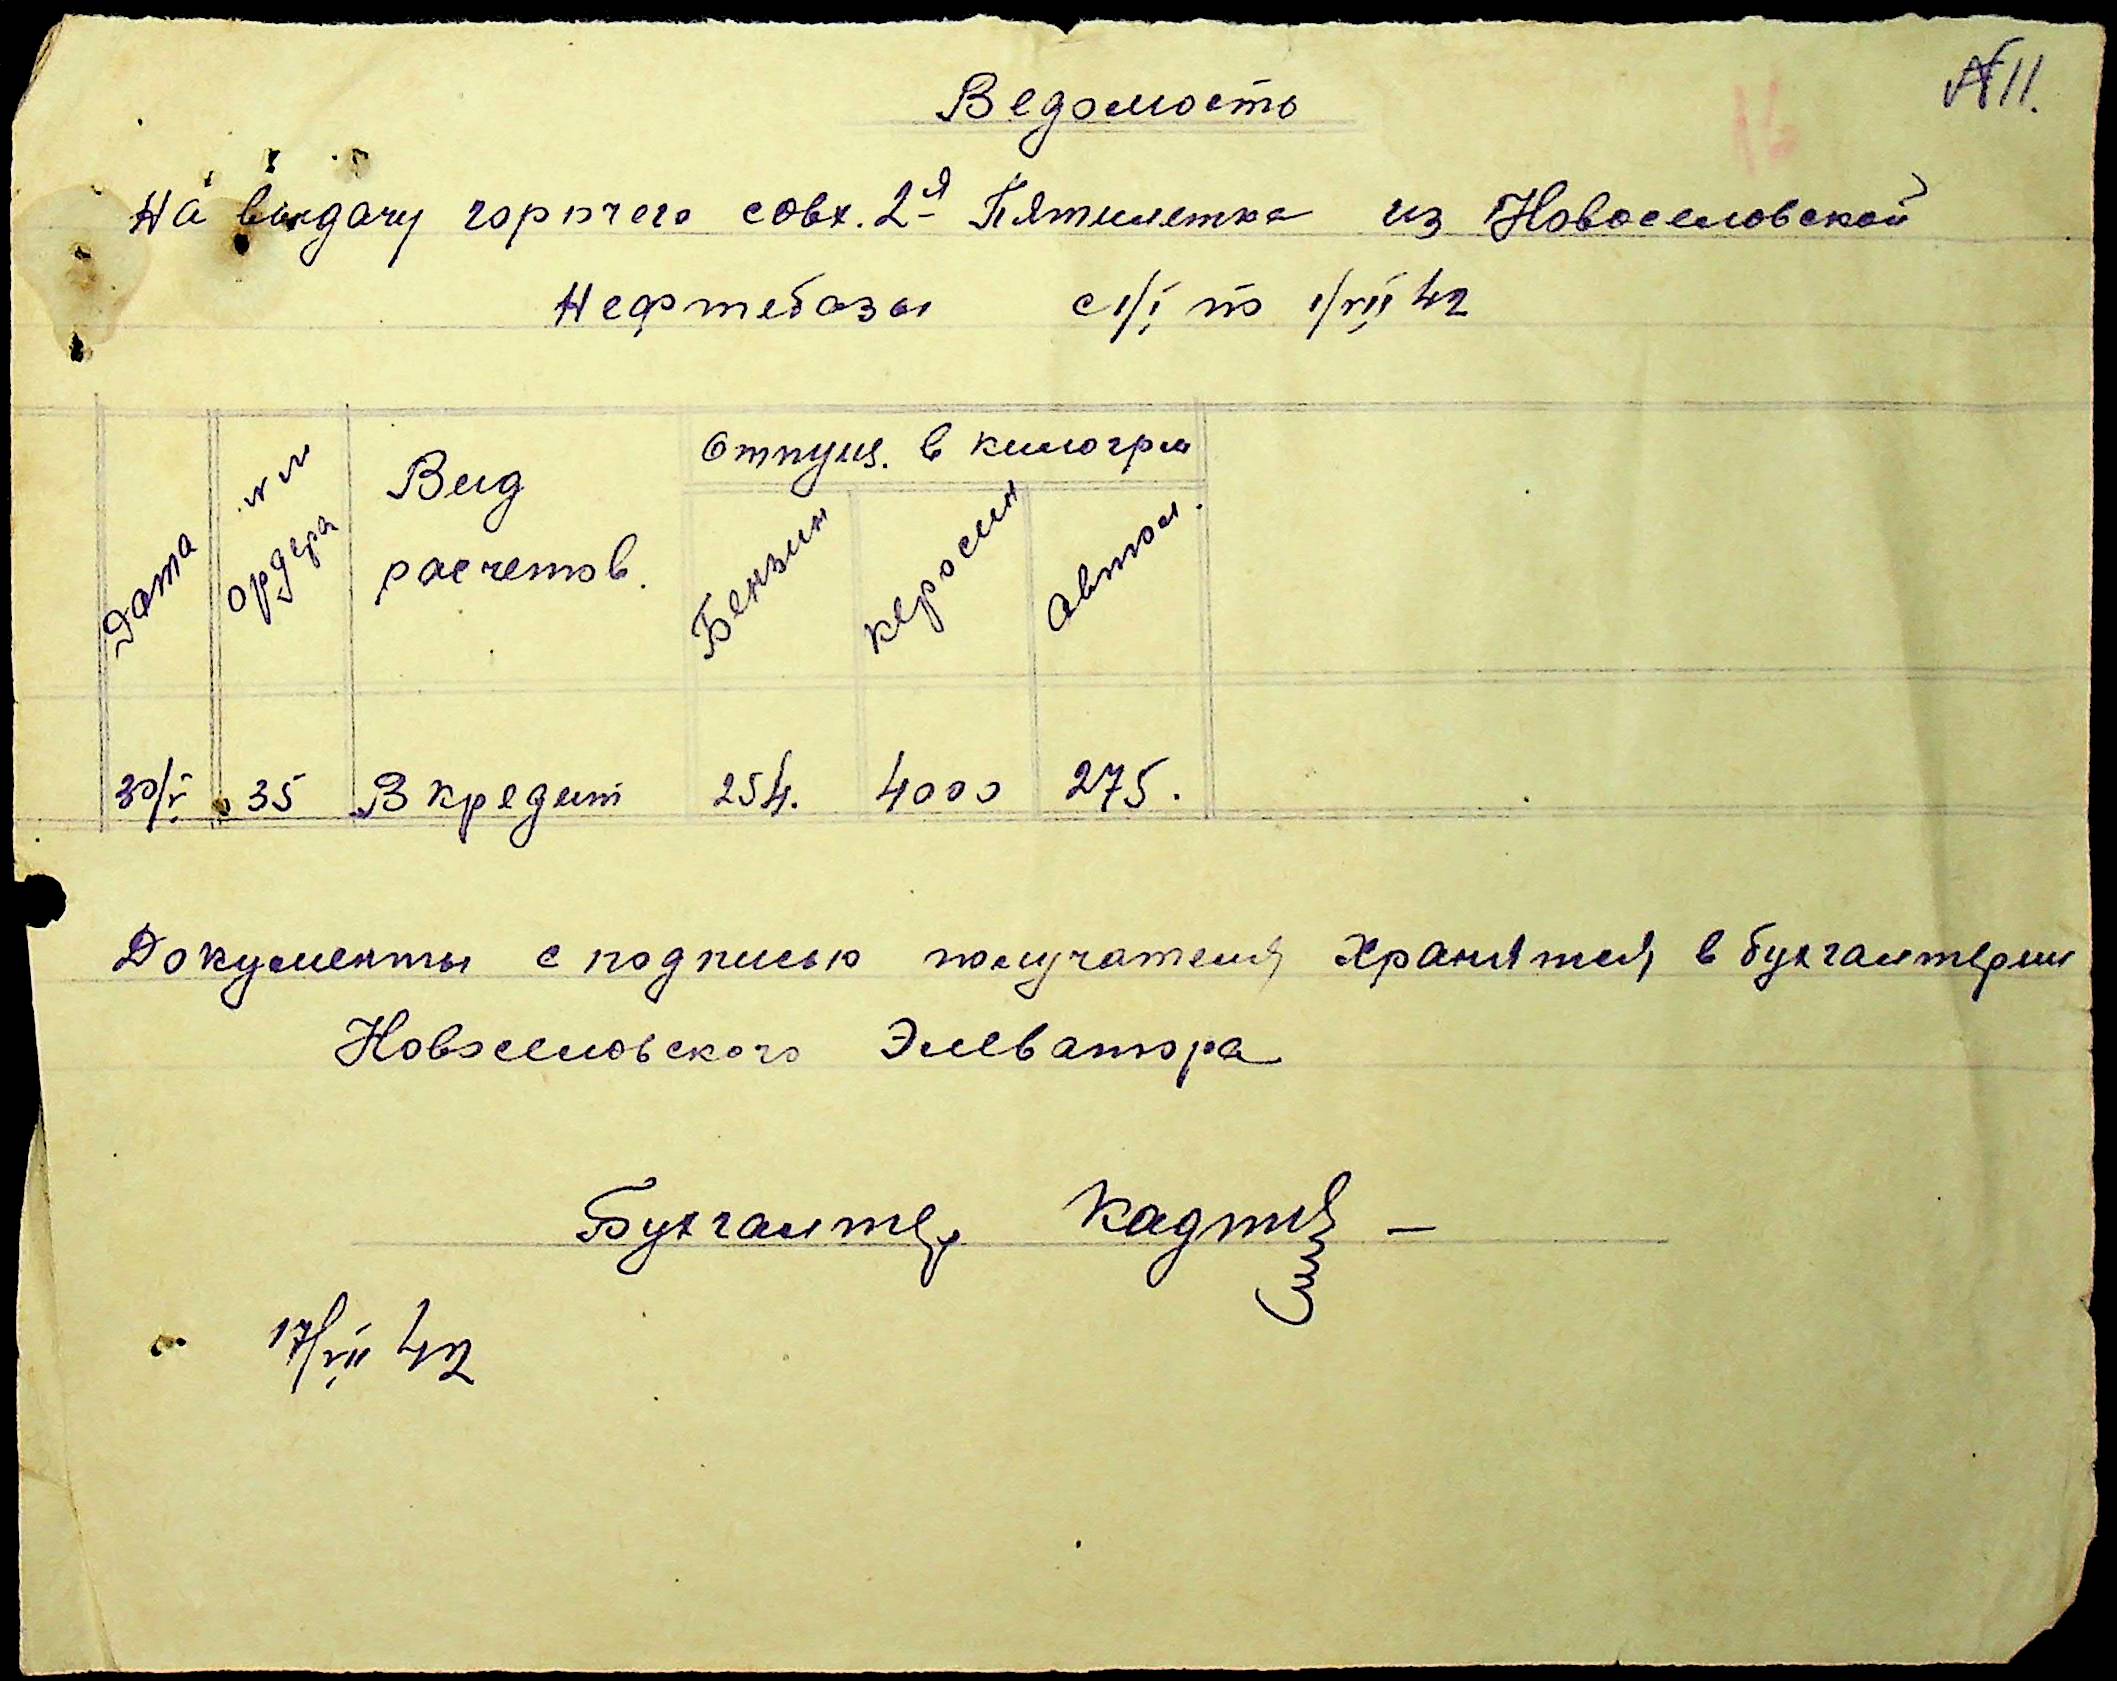 №11.
Ведомость
на выдачу горючего совх. 2-я Пятилетка из Новоселовской
Нефтебазы с 1/I по 1/VII 42
Дата №№ ордера Вид расчетов. Отпущ. в килогрм
Бензин керосин автол.
30/V 35 В кредит 254. 4000 275.
Документы с подписью получателя хранятся в бухгалтерии
Новоселовского Элеватора
Бухгалтер
17/VII 42